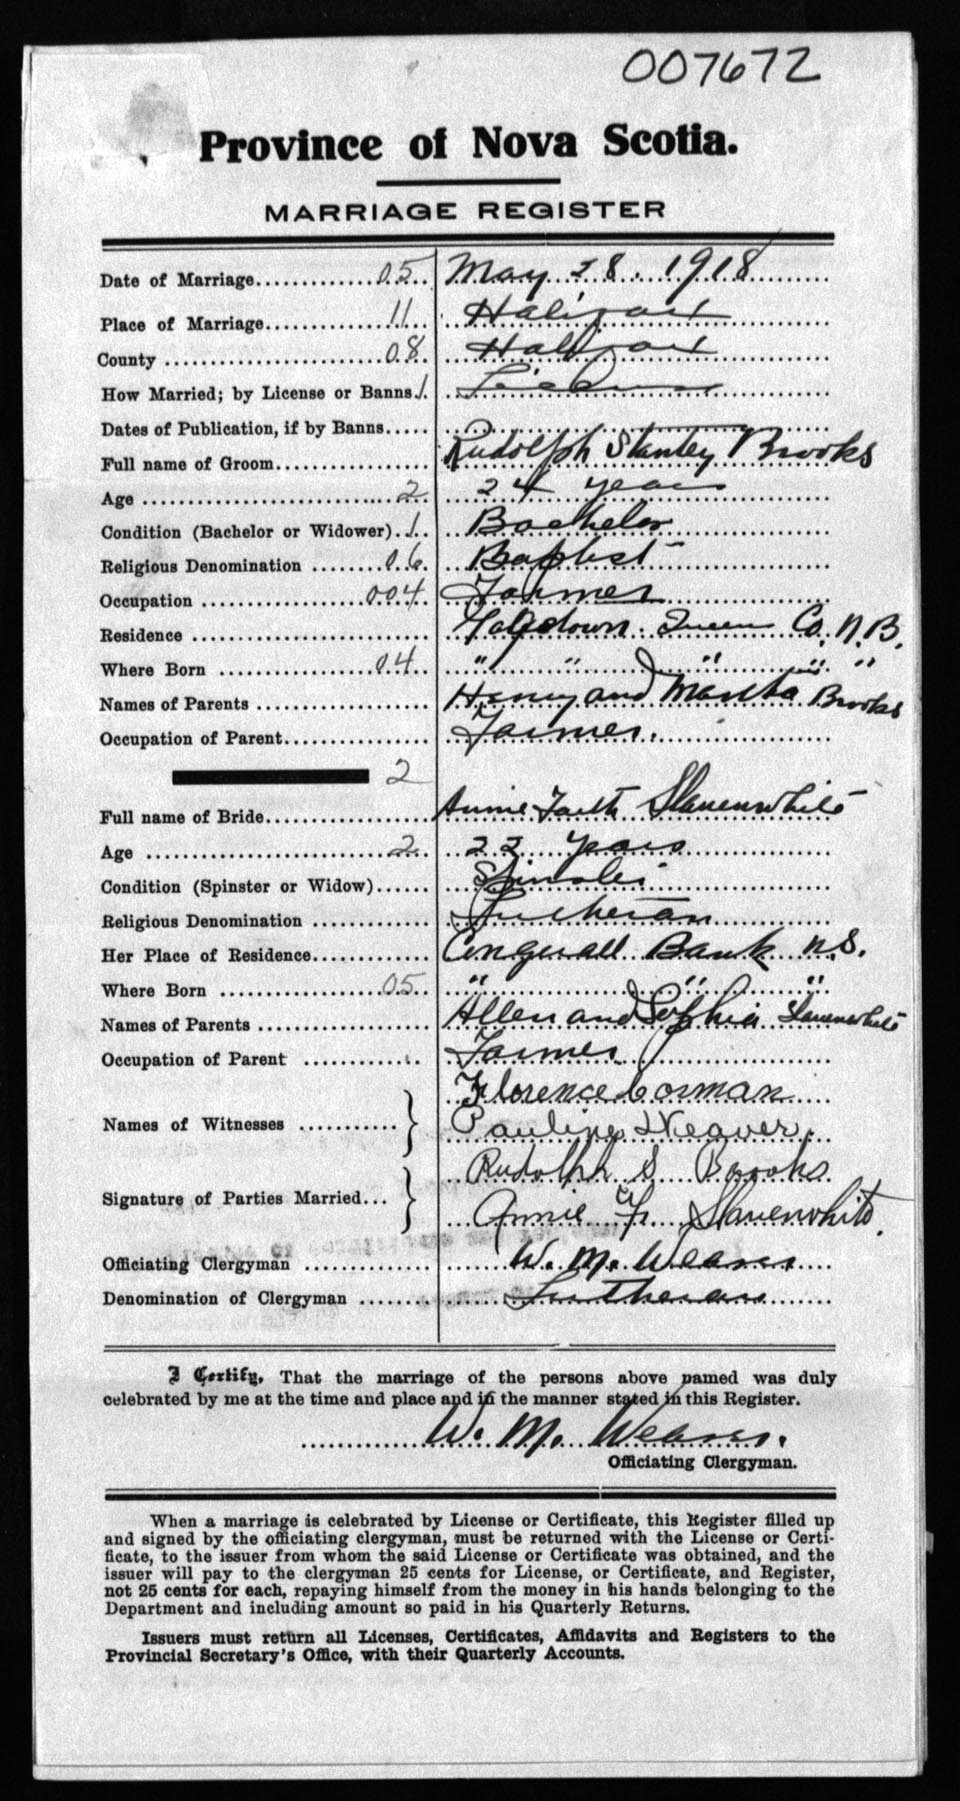 007672
Province of Nova Scotia.
MARRIAGE REGISTER
Date of Marriage 05 May 28. 1918
Place of Marriage 11 Halifax
County 08 Halifax
How Married; by License or Banns 1 License
Dates of Publication, if by Banns
Full name of Groom Rudolph Stanley Brooks
Age 2 24 years
Condition (Bachelor or Widower) 1 Bachelor
Religious Denomination 06 Baptist
Occupation 004 Farmer
Residence Queen Co. N.B.
Where Born 04 " " " " "
Names of Parents Henry and Martha Brooks
Occupation of Parent Farmer.
2
Full name of Bride Annie Faith Slauenwhite
Age 2 22 years
Condition (Spinster or Widow) Spinster
Religious Denomination Lutheran
Her Place of Residence Conquerall Bank N.S.
Where Born 05 " " "
Names of Parents Allen and Sophia Slauenwhite
Occupation of Parent Farmer
Florence Corman
Names of Witnesses } Pauline Weaver
Rudolph S Brooks
Signature of Parties Married }
Annie F. Slauenwhite.
Officiating Clergyman W. M. Weaver
Denomination of Clergyman Lutheran
I Certify, That the marriage of the persons above named was duly
celebrated by me at the time and place and in the manner stated in this Register.
W. M. Weaver.
Officiating Clergyman.
When a marriage is celebrated by License or Certificate, this Register filled up
and signed by the officiating clergyman, must be returned with the License or Certi-
ficate, to the issuer from whom the said License or Certificate was obtained, and the
issuer will pay to the clergyman 25 cents for License, or Certificate, and Register,
not 25 cents for each, repaying himself from the money in his hands belonging to the
Department and including amount so paid in his Quarterly Returns.
Issuers must return all Licenses, Certificates, Affidavits and Registers to the
Provincial Secretary's Office, with their Quarterly Accounts.